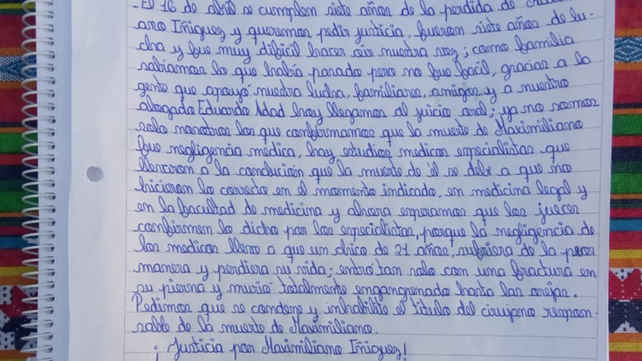 - El 16 de abril se cumplen siete años de la perdida de
ano Iñiguez y queremos pedir justicia, fueron siete años de lu-
cha y fue muy difícil hacer oír nuestra voz; como familia
sabíamos lo que había pasado pero no fue facil, gracias a la
gente que apoyó nuestra lucha, familiares, amigos y a nuestro
abogado Eduardo Adad hoy llegamos al juicio oral; ya no somos
solo nosotros los que confirmamos que la muerte de Maximiliano
fue negligencia médica, hay estudios medicos especialistas que
llevaron a la conclución que la muerte de él se debe a que no
hicieron lo correcto en el momento indicado, en medicina legal y
en la facultad de medicina y ahora esperamos que los jueces
confirmen lo dicho por los especialistas, porque la negligencia de
los medicos llevo a que un chico de 21 años, sufriera de la peor
manera y perdiera su vida; entró tan solo con una fractura en
su pierna y murió totalmente engangrenado hasta las orejas.
Pedimos que se condene y inhabilite el titulo del cirujano respon-
sable de la muerte de Maximiliano.
¡ Justicia por Maximiliano Iñiguez!